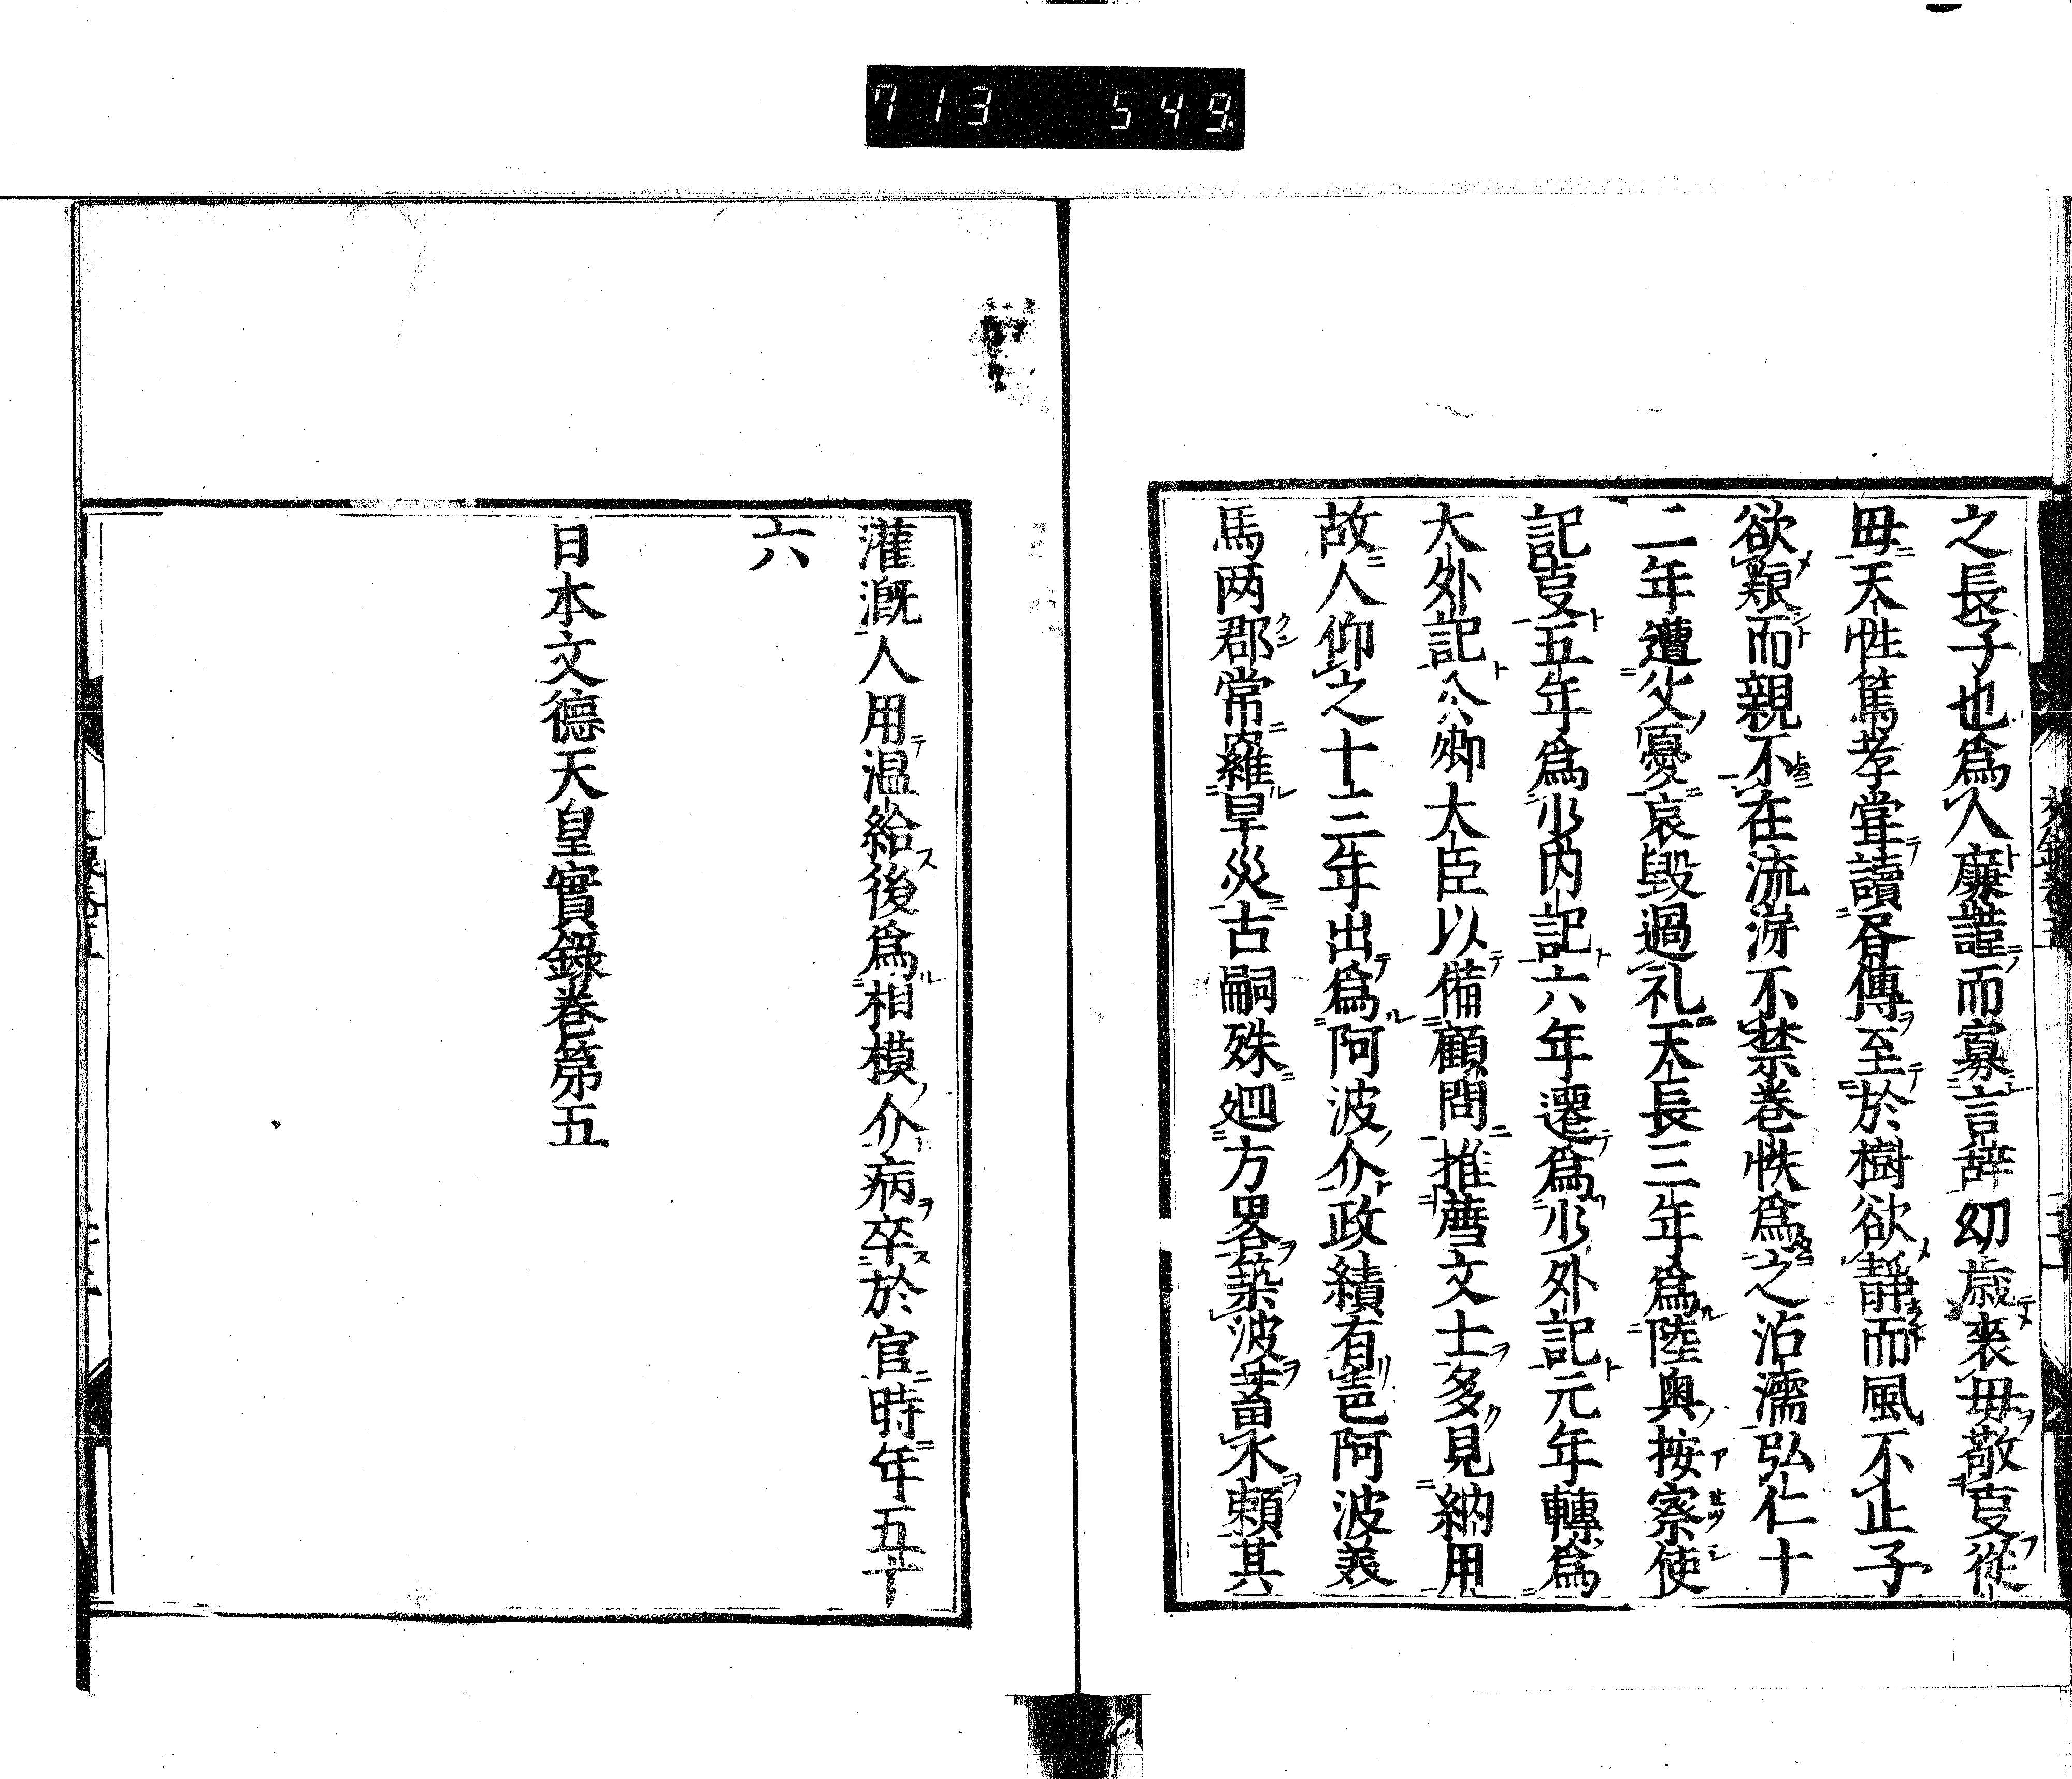 713 549
之長子也爲人廉謹而寡言辞幼歳喪毋敬叓從
毋天性篤孝甞讀晉傳至於樹欲靜而風不止子
欲飬而親不在流涕不禁巻帙爲之沾濡弘仁十
二年遭父憂哀毀過礼天長三年爲陸奥按察使
記叓五年爲少内記六年遷爲少外記元年轉爲
大外記公卿大臣以備顧問推薦文士多見納用
故人仰之十三年出爲阿波介政績有聲阿波美
馬两郡常罹旱災古嗣殊廻方畧築波畜水頼其
灌漑人用温給後爲相模介病卒於官時年五十
六
日本文德天皇實錄巻第五